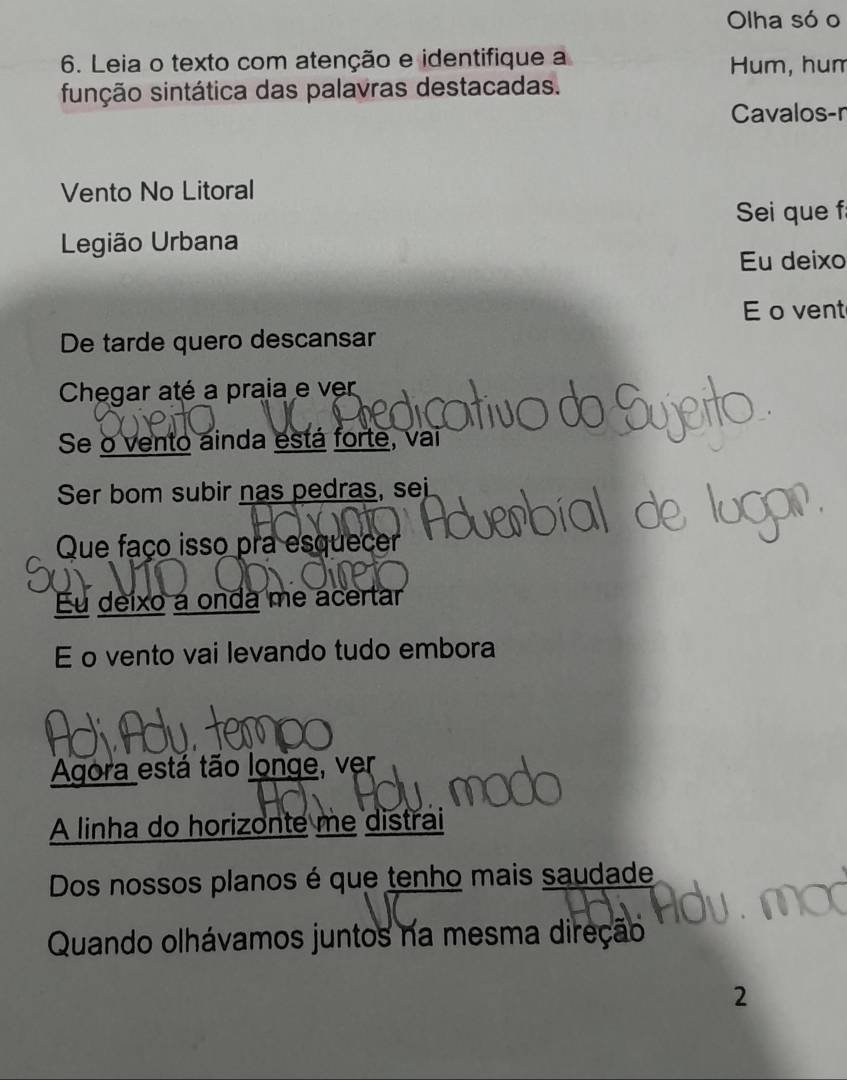 6. Leia o texto com atenção e identifique a
função sintática das palavras destacadas.
Vento No Litoral
Legião Urbana
De tarde quero descansar
Chegar até a praia e ver
Sujeito VC Predicativo do Sujeito.
Se o vento ainda está forte, vai
Ser bom subir nas pedras, sei
Adjunto Adverbial de lugar.
Que faço isso pra esquecer
Suj. VTD Obj. direto
Eu deixo a onda me acertar
E o vento vai levando tudo embora
Adj. Adv. tempo
Agora está tão longe, ver
Adj. Adv. modo
A linha do horizonte me distrai
Dos nossos planos é que tenho mais saudade
VC Adj. Adv. mod
Quando olhávamos juntos na mesma direção
2
Olha só o
Hum, hum
Cavalos-
Sei que f
Eu deixo
E o vent